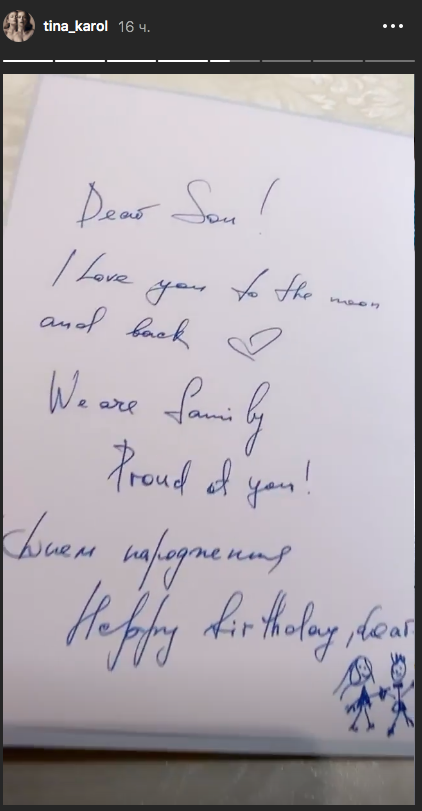 tina_karol 16 ч.
Dear Son!
I Love you to the moon
and back
We are family
Proud of you!
Днем народження
Happy birthday, dear